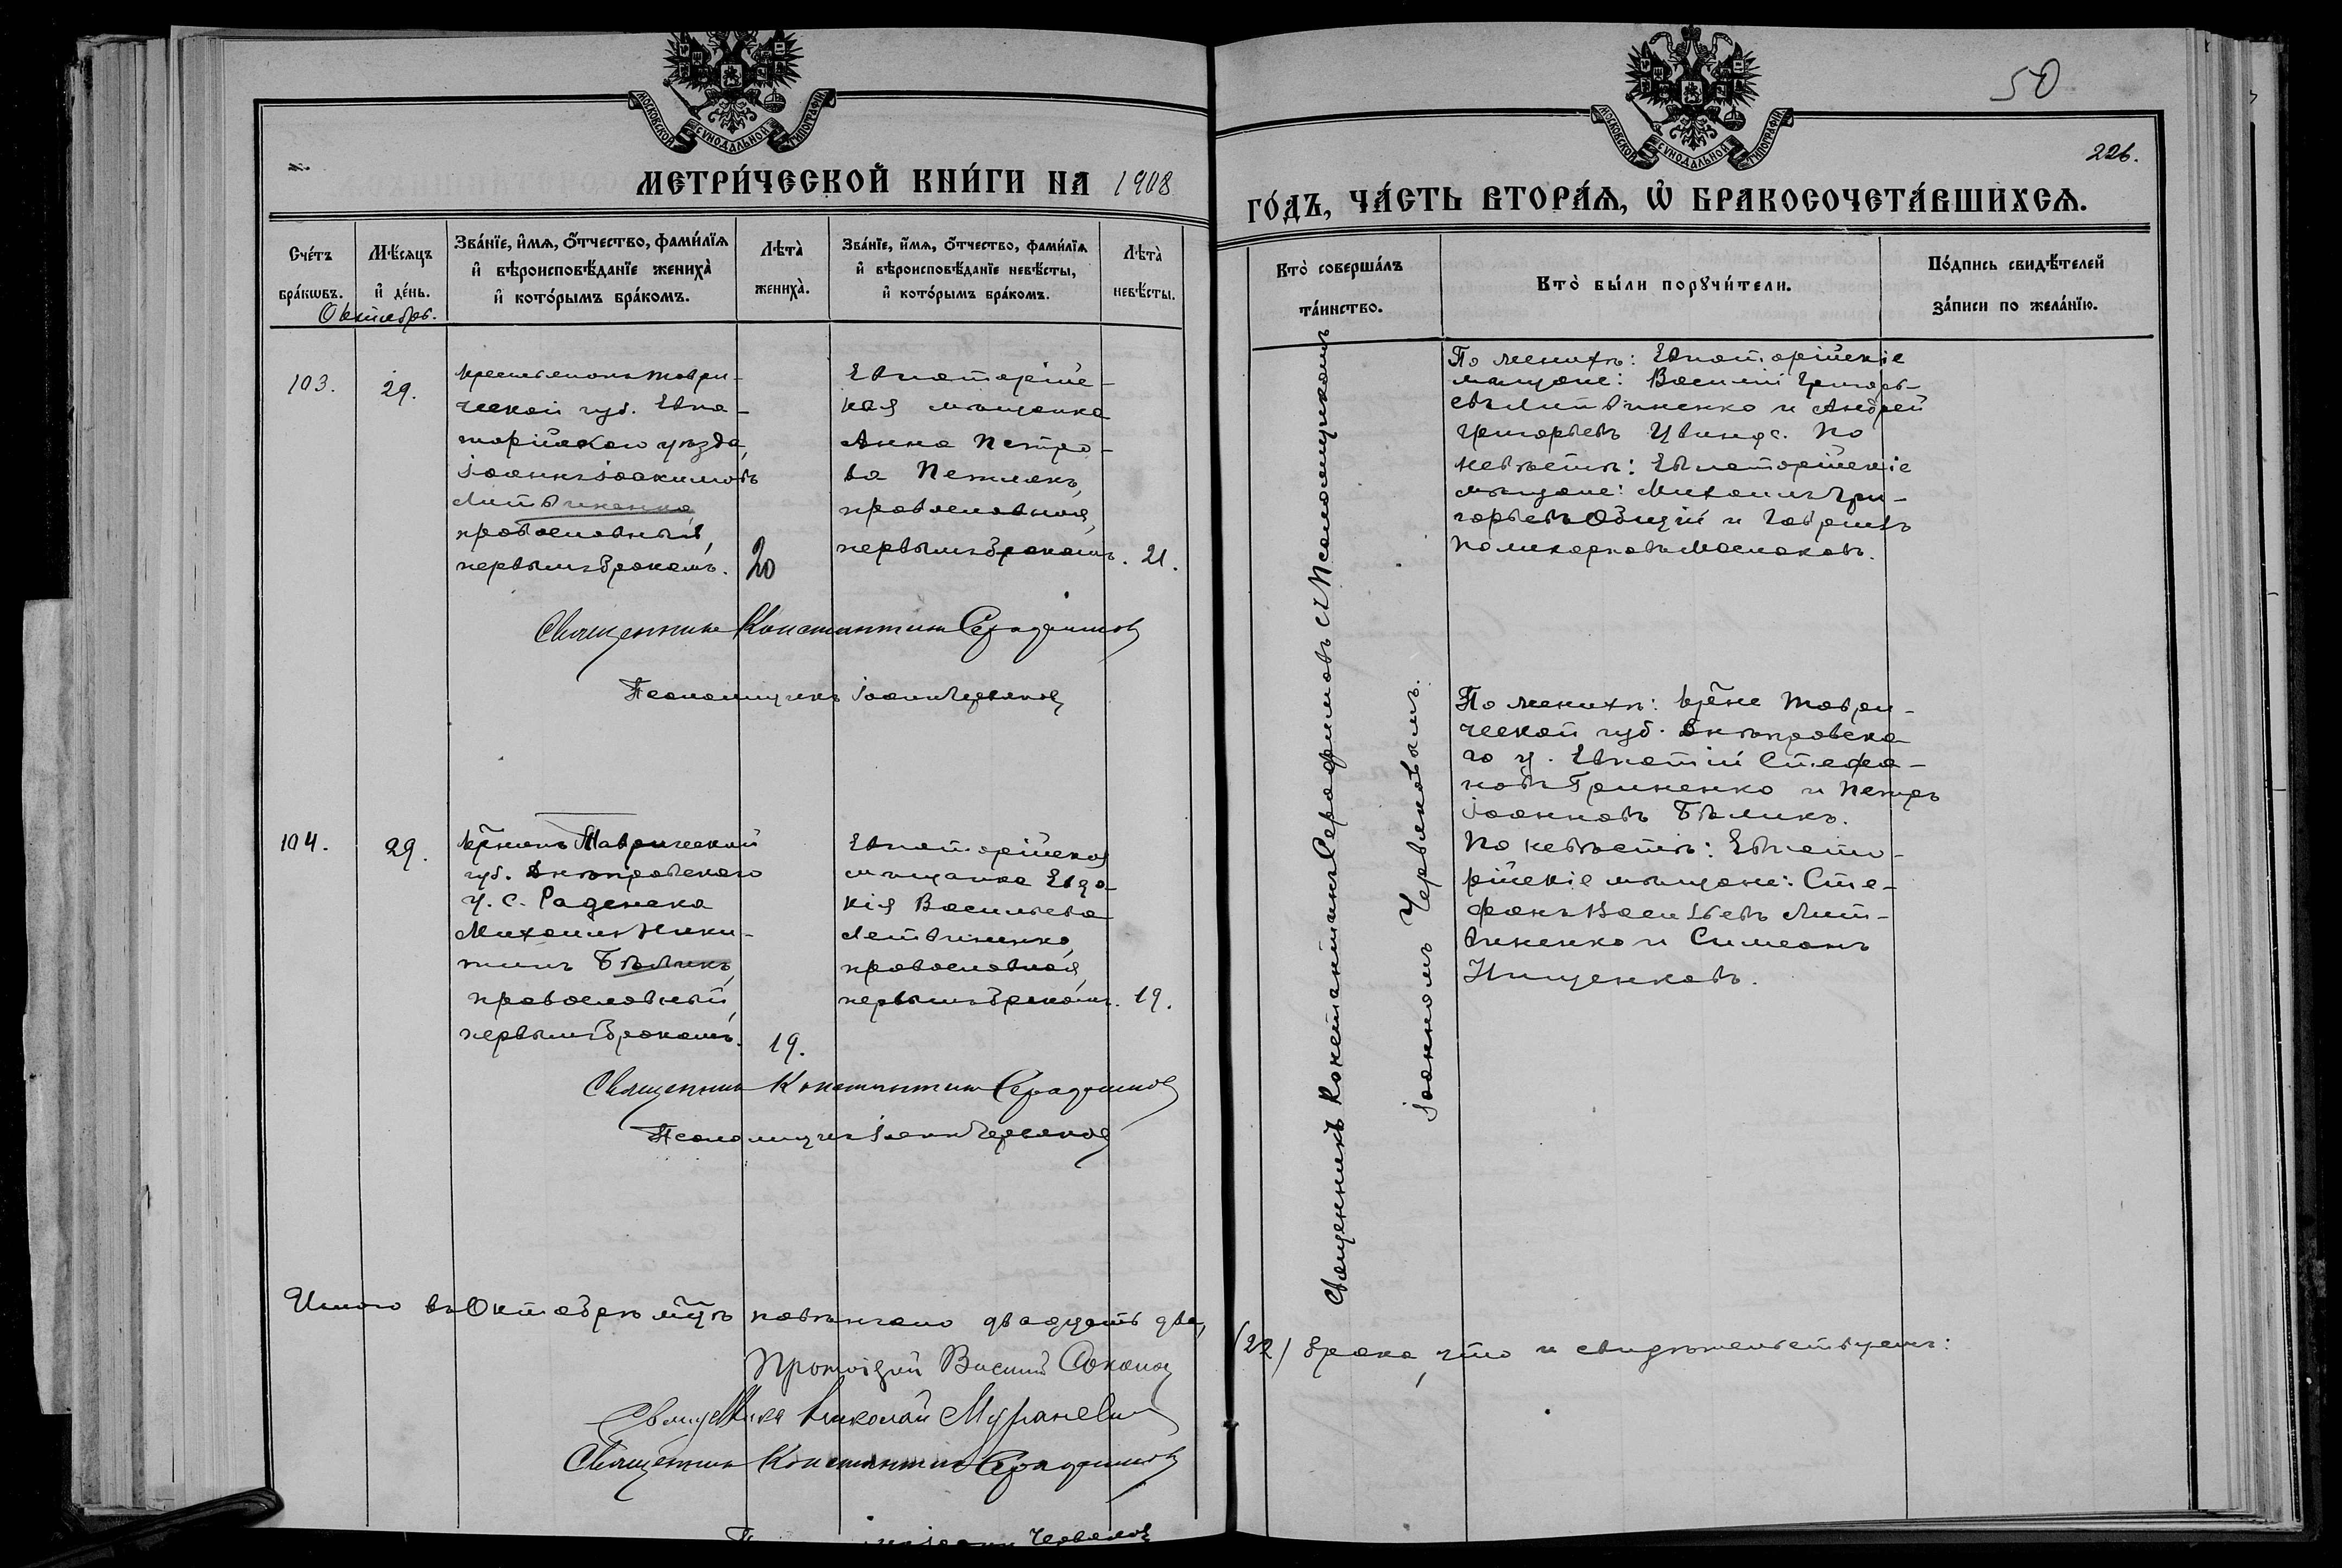 МОСКОВСКОЙ СУНОДАЛЬНОЙ ТИПОГРАФІИ
МЕТРИ́ЧЕСКОЙ КНИ́ГИ НА 1908
Сче́тъ бра́кѡвъ.
Мѣ́сяцъ и҆ де́нь.
Октября.
Зва́нїе, и҆́мѧ, ѻ҆́тчество, фами́лїѧ и҆ вѣроисповѣ́данїе жениха̀ и҆ кото́рымъ бра́комъ.
Лѣта̀ жениха̀.
Зва́нїе, и҆́мѧ, ѻ҆́тчество, фами́лїѧ и҆ вѣроисповѣ́данїе невѣ́сты, и҆ кото́рымъ бра́комъ.
Лѣта̀ невѣ́сты.
103.
29.
Крестьянинъ Таври-
ческой губ. Евпа-
торійскаго уѣзда,
Іоаннъ Іоакимовъ
Литвиненко,
православный,
первымъ бракомъ.
20
Евпаторійс-
кая мѣщанка
Анна Петро-
ва Петлякъ,
православная,
первымъ бракомъ.
21.
Священникъ Константинъ Серафимовъ
Псаломщикъ Іоаннъ Червяковъ
104.
29.
Кр̃нинъ Таврической
губ. Днѣпровскаго
у. с. Раденска
Михаилъ Ники-
тинъ Бѣликъ,
православный,
первымъ бракомъ.
19.
Евпаторійская
мѣщанка Евдо-
кія Васильева
Литвиненко,
православная,
первымъ бракомъ.
19.
Священникъ Константинъ Серафимовъ
Псаломщикъ Іоаннъ Червяковъ
Итого въ Октябрѣ мц̃ѣ повѣнчано двадцать два,
Протоіерей Василій Соколов
Священникъ Николай
Священникъ Константинъ Серафимовъ
Червяков
50
226.
МОСКОВСКОЙ СУНОДАЛЬНОЙ ТИПОГРАФІИ
ГО́ДЪ, ЧА́СТЬ ВТОРА́Ѧ, Ѡ҆ БРАКОСОЧЕТА́ВШИХСѦ.
Кто̀ соверша́лъ та́инство.
Кто̀ бы́ли порꙋчи́тели.
По́дпись свидѣ́телей за́писи по жела́нїю.
Священникъ Константинъ Серафимовъ съ Псаломщикомъ
Іоанномъ Червяковымъ.
По женихѣ: Евпаторійскіе
мѣщане: Василій Григорь-
евъ Литвиненко и Андрей
Григорьевъ По
невѣстѣ: Евпаторійскіе
мѣщане: Михаилъ Гри-
горьевъ Общій и Гавріилъ
Поликарповъ Маслаковъ.
По женихѣ: кр̃не Таври-
ческой губ. Днѣпровска
го у. Евпатій Стефа-
новъ Гриненко и Петръ
Іоанновъ Бѣликъ.
По невѣстѣ: Евпато-
рійскіе мѣщане: Сте-
фанъ Васильевъ Лит-
виненко и Симеонъ
Нищенковъ.
(22) брака, что и свидѣтельствуемъ: